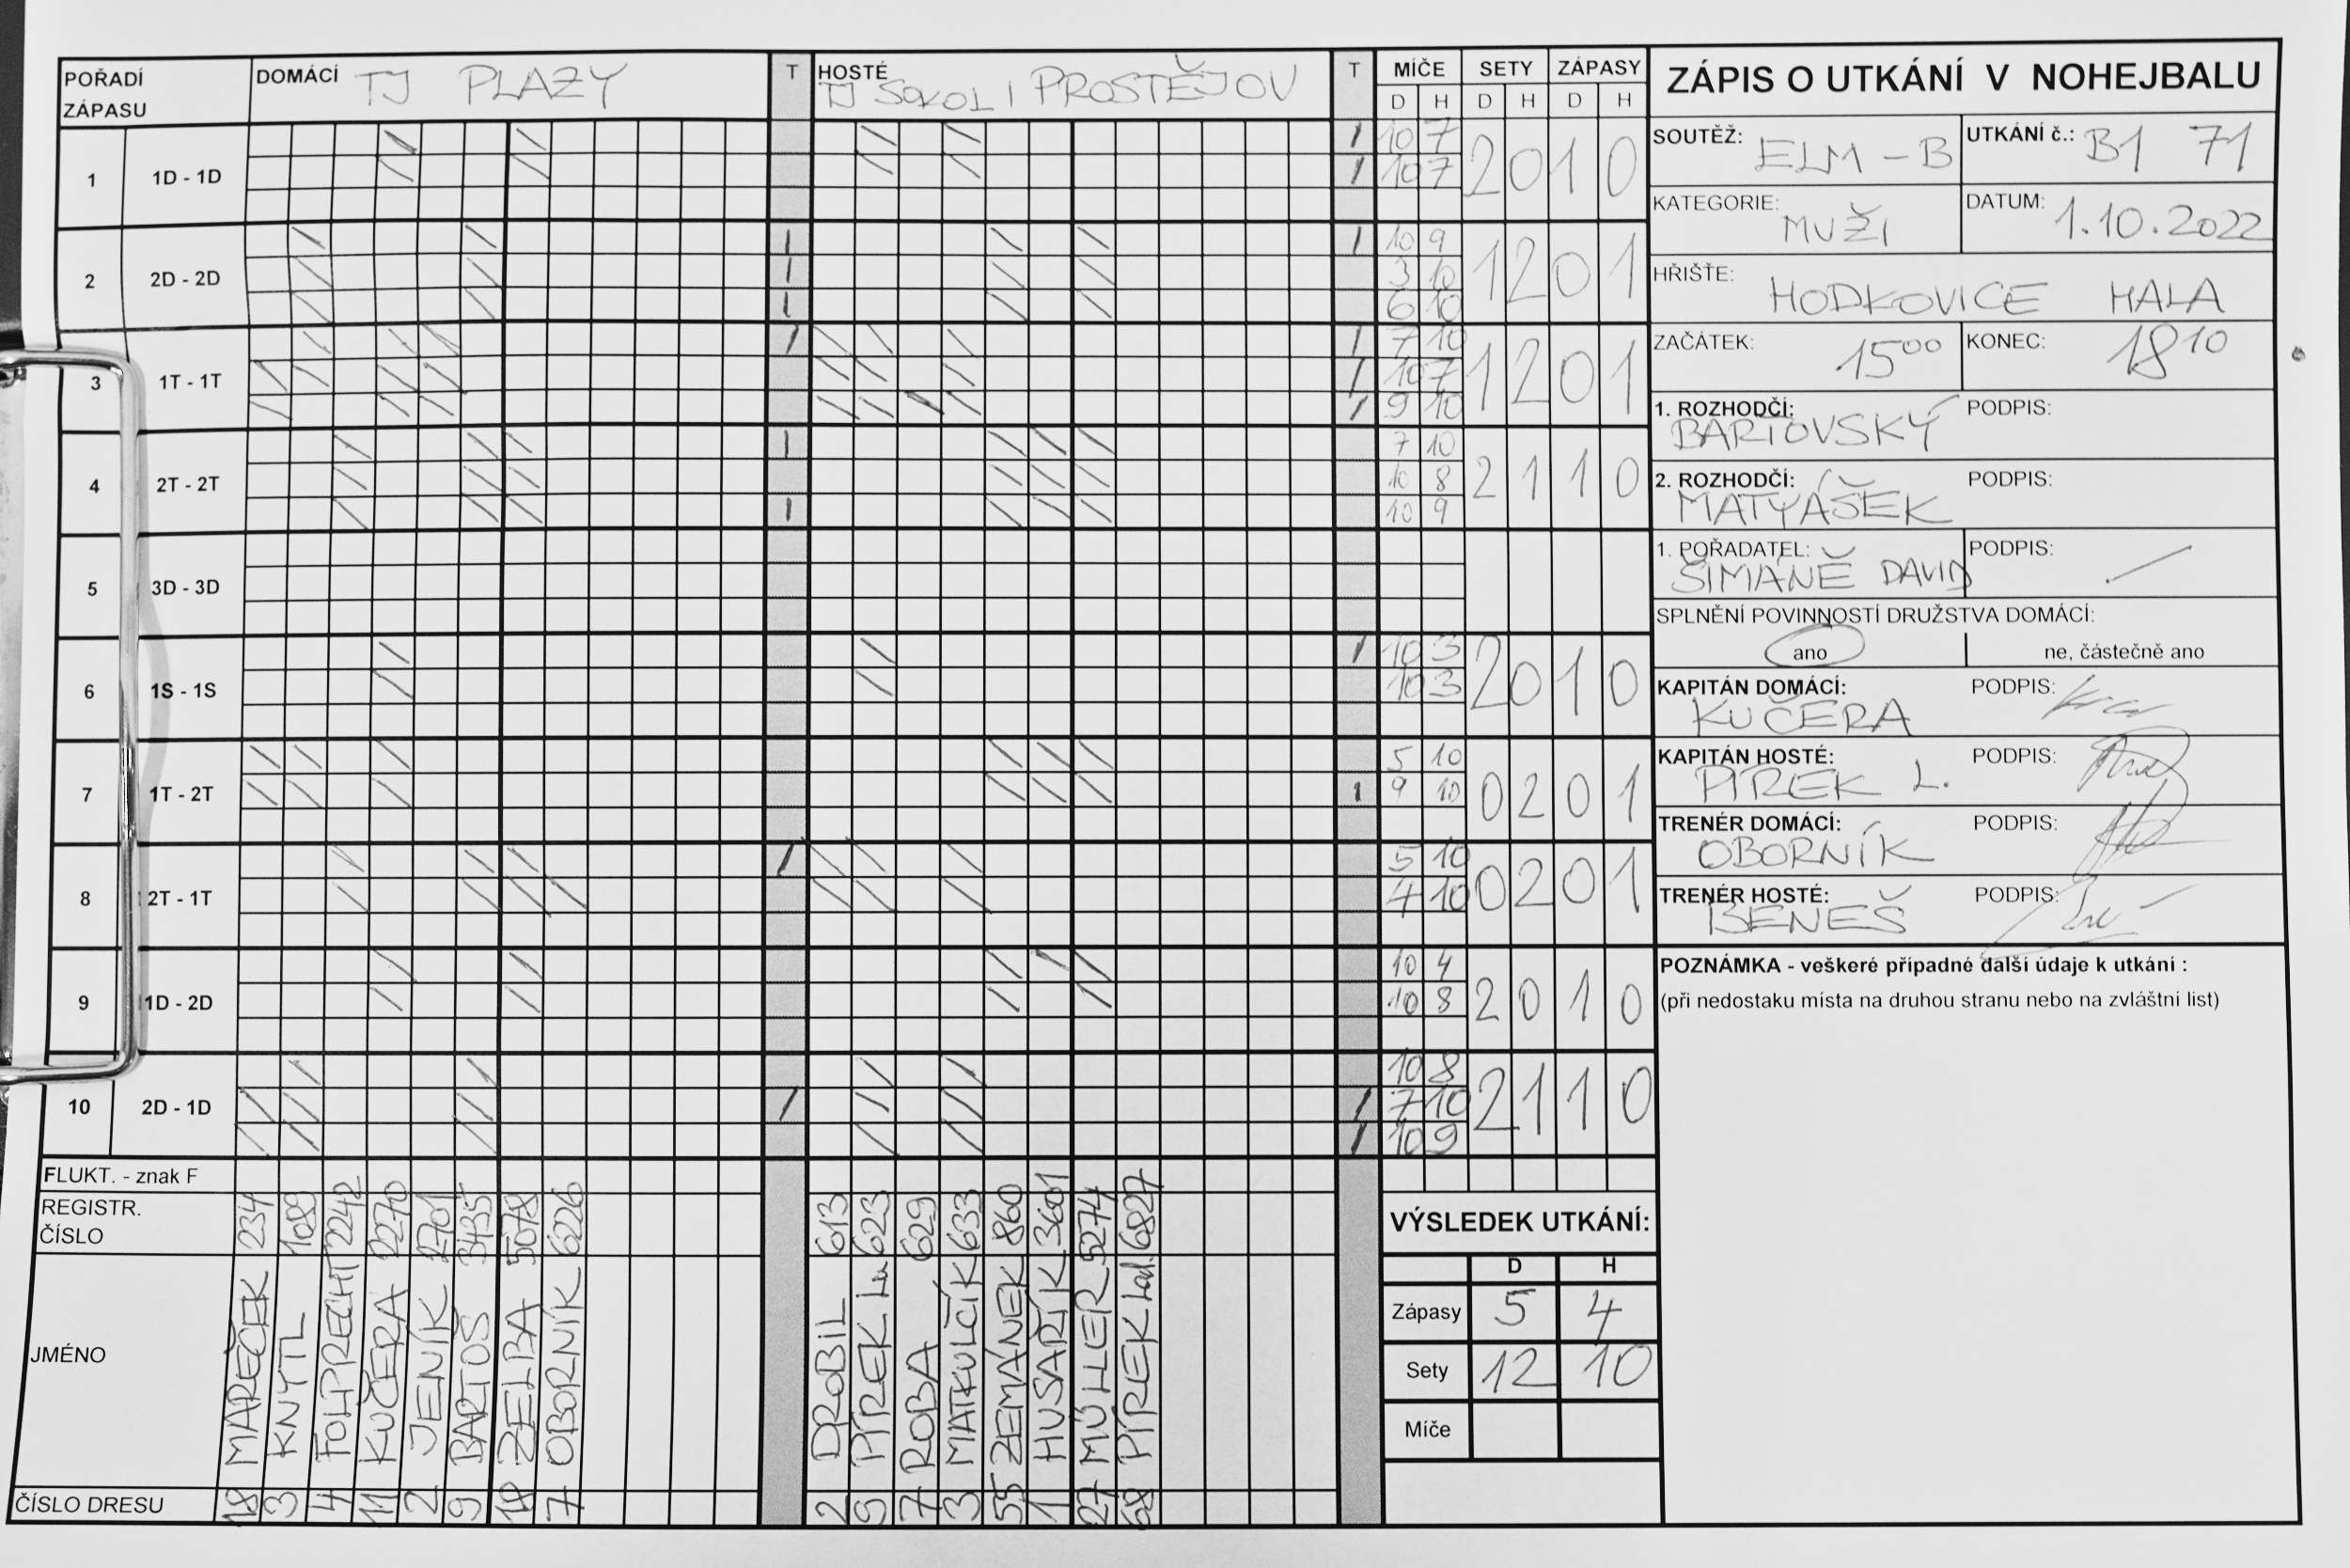 POŘADÍ ZÁPASU DOMÁCÍ TJ PLAZY T HOSTÉ TJ SOKOL I PROSTĚJOV T MÍČE SETY ZÁPASY
D H D H D H
1 1D - 1D 10 7 2 0 1 0
10 7
2 2D - 2D 10 9 1 2 0 1
3 10
6 10
3 1T - 1T 7 10 1 2 0 1
10 7
9 10
4 2T - 2T 7 10 2 1 1 0
10 8
10 9
5 3D - 3D
6 1S - 1S 10 3 2 0 1 0
10 3
7 1T - 2T 5 10 0 2 0 1
9 10
8 2T - 1T 5 10 0 2 0 1
4 10
9 1D - 2D 10 4 2 0 1 0
10 8
10 2D - 1D 10 8 2 1 1 0
7 10
10 9
FLUKT. - znak F
REGISTR. ČÍSLO 234 1089 2242 2270 2701 3435 5078 6226 613 623 629 633 860 3601 5274 6827
JMÉNO MAREČEK KNYTL FOLPRECHT KUČERA JENÍK BARTOŠ ZELBA OBORNÍK DROBIL PÍREK Lu ROBA MATKULČÍK ZEMÁNEK HUSAŘÍK MÜLLER PÍREK Lad.
ČÍSLO DRESU 18 3 4 11 2 9 18 7 2 5 7 3 55 1 27 68
VÝSLEDEK UTKÁNÍ:
D H
Zápasy 5 4
Sety 12 10
Míče
ZÁPIS O UTKÁNÍ V NOHEJBALU
SOUTĚŽ: ELM - B UTKÁNÍ č.: B1 71
KATEGORIE: MUŽI DATUM: 1.10.2022
HŘIŠTE: HODKOVICE HALA
ZAČÁTEK: 15 00 KONEC: 18 10
1. ROZHODČÍ: BARTOVSKÝ PODPIS:
2. ROZHODČÍ: MATYÁŠEK PODPIS:
1. POŘADATEL: ŠIMÁNĚ DAVID PODPIS:
SPLNĚNÍ POVINNOSTÍ DRUŽSTVA DOMÁCÍ:
ano ne, částečně ano
KAPITÁN DOMÁCÍ: KUČERA PODPIS:
KAPITÁN HOSTÉ: PÍREK L. PODPIS:
TRENÉR DOMÁCÍ: OBORNÍK PODPIS:
TRENÉR HOSTÉ: BENEŠ PODPIS:
POZNÁMKA - veškeré případné další údaje k utkání :
(při nedostaku místa na druhou stranu nebo na zvláštní list)